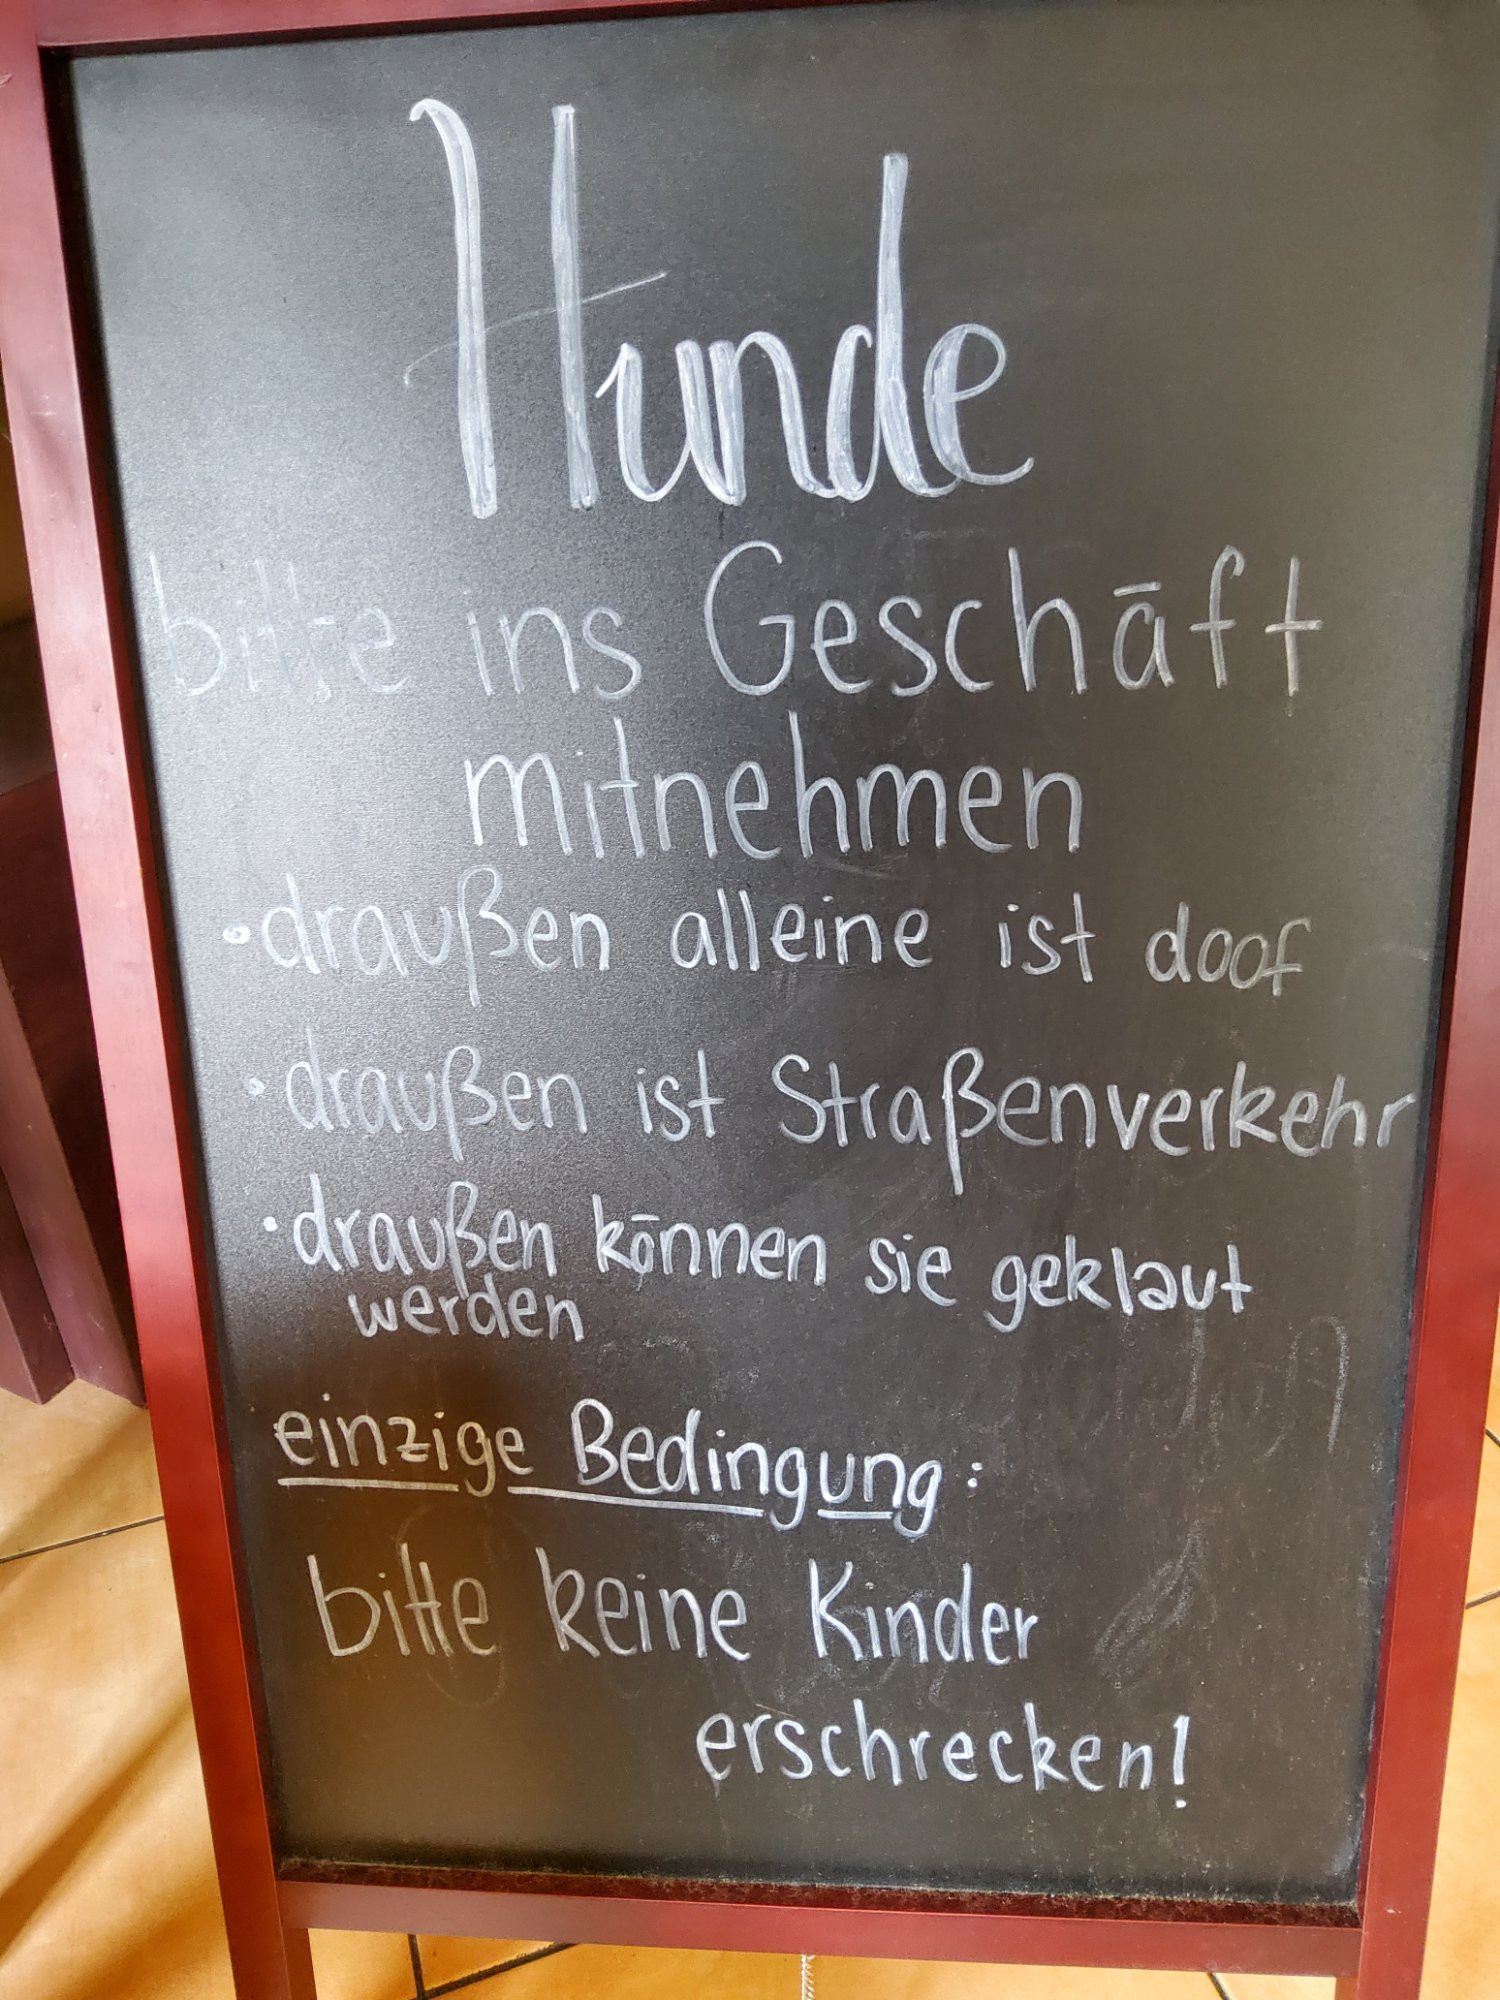 Hunde
bitte ins Geschäft
mitnehmen
• draußen alleine ist doof
• draußen ist Straßenverkehr
• draußen können sie geklaut
werden
einzige Bedingung:
bitte keine Kinder
erschrecken!